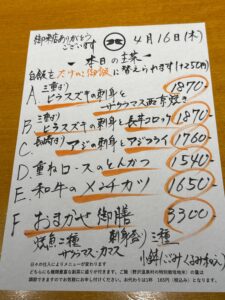 御来店ありがとう
ございます
4月16日(木)
本日の主菜
白飯を たけのこ御飯 に替えられます(+250円)
A. 三重より ヒラスズキの刺身と 1870-
サクラマス西京焼き
B. 三重より ヒラスズキの刺身と 長芋コロッケ 1870-
C. 長崎より アジの刺身とアジフライ 1760-
D. 重ねロースのとんかつ 1540-
E. 和牛のメンチカツ 1650-
F おまかせ御膳 3300-
焼魚二種 刺身盛り三種
サクラマス・カマス 小鉢
日々の仕入によりメニューが変わります